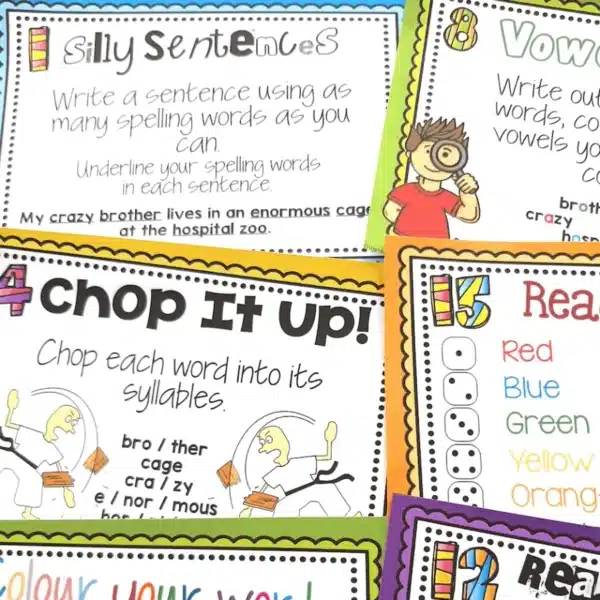 1 Silly Sentences
Write a sentence using as
many spelling words as you
can.
Underline your spelling words
in each sentence.
My crazy brother lives in an enormous cage
at the hospital zoo.
8
Write out
words,
vowels
crazy
4 Chop It Up!
Chop each word into its
syllables.
bro / ther
cage
cra / zy
e / nor / mous
15
Red
Blue
Green
Yellow
Colour your
12